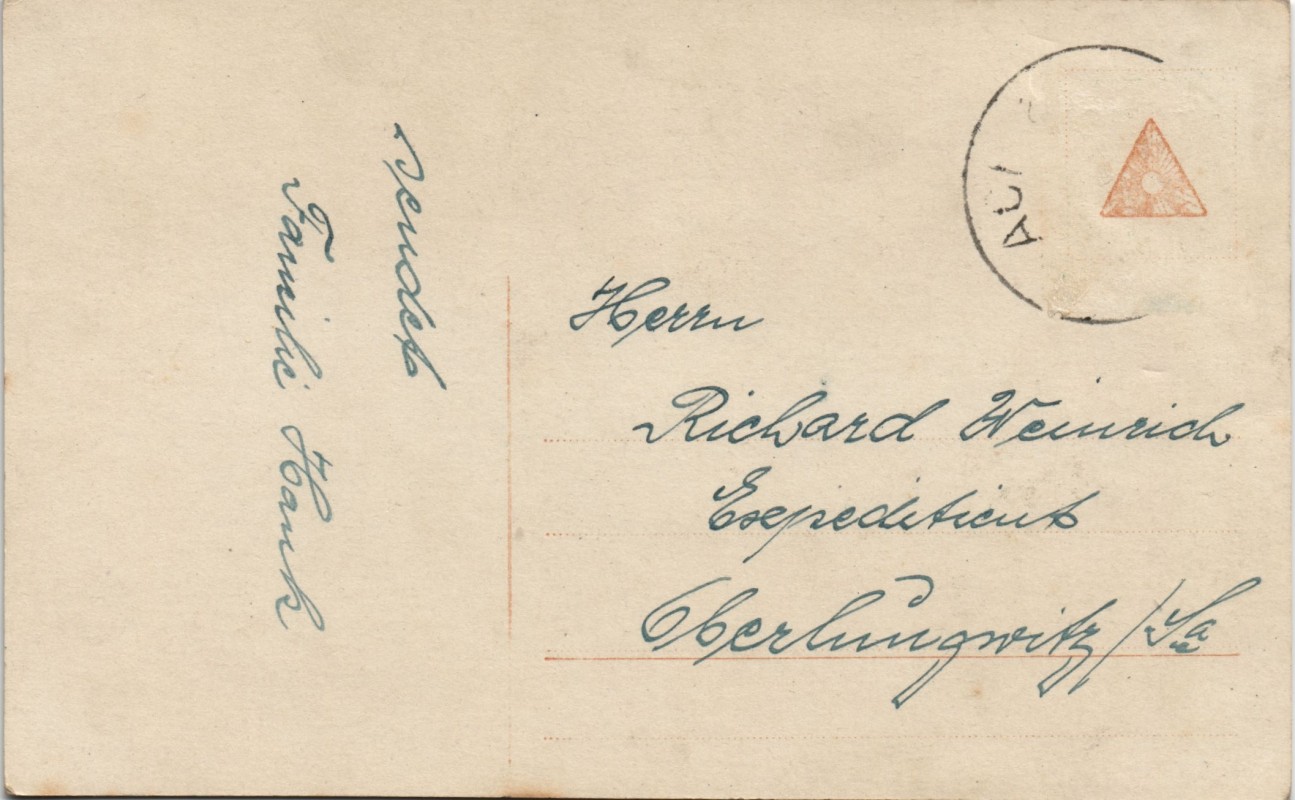 sendet
Familie Hank
AU
Herrn
Richard Weinrich
Expedient
Oberlungwitz/Sa